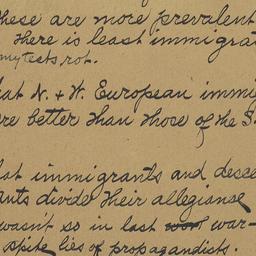 these are more prevalent
There is least immigrat
my tests rot.
hat N. + W. European immi
are better than those of the S.
at immigrants and desce
ants divide their allegianse
wasn't so in last war—
spite lies of propagandists.